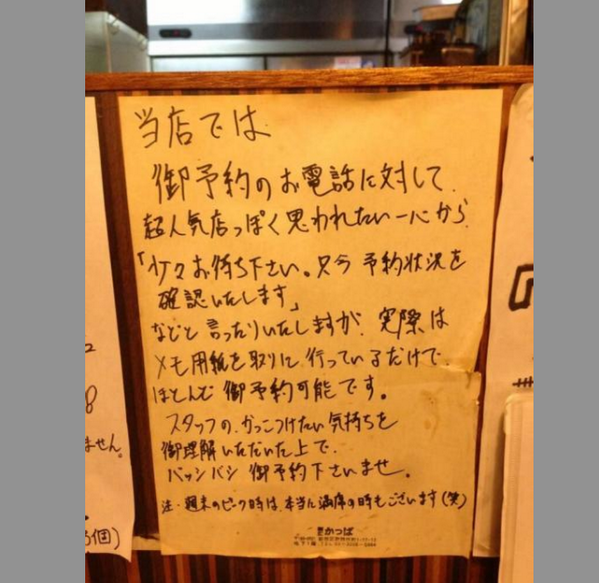 当店では
御予約のお電話に対して
超人気店っぽく思われたい一心から
「少々お待ち下さい。只今予約状況を
確認いたします」
などと言ったりいたしますが、実際は
メモ用紙を取りに行っているだけで
ほとんど御予約可能です。
スタッフの、かっこつけたい気持ちを
御理解いただいた上で、
バッシバシ御予約下さいませ。
注・週末のピーク時は、本当に満席の時もございます(笑)
かっぱ
8
ません。
個)